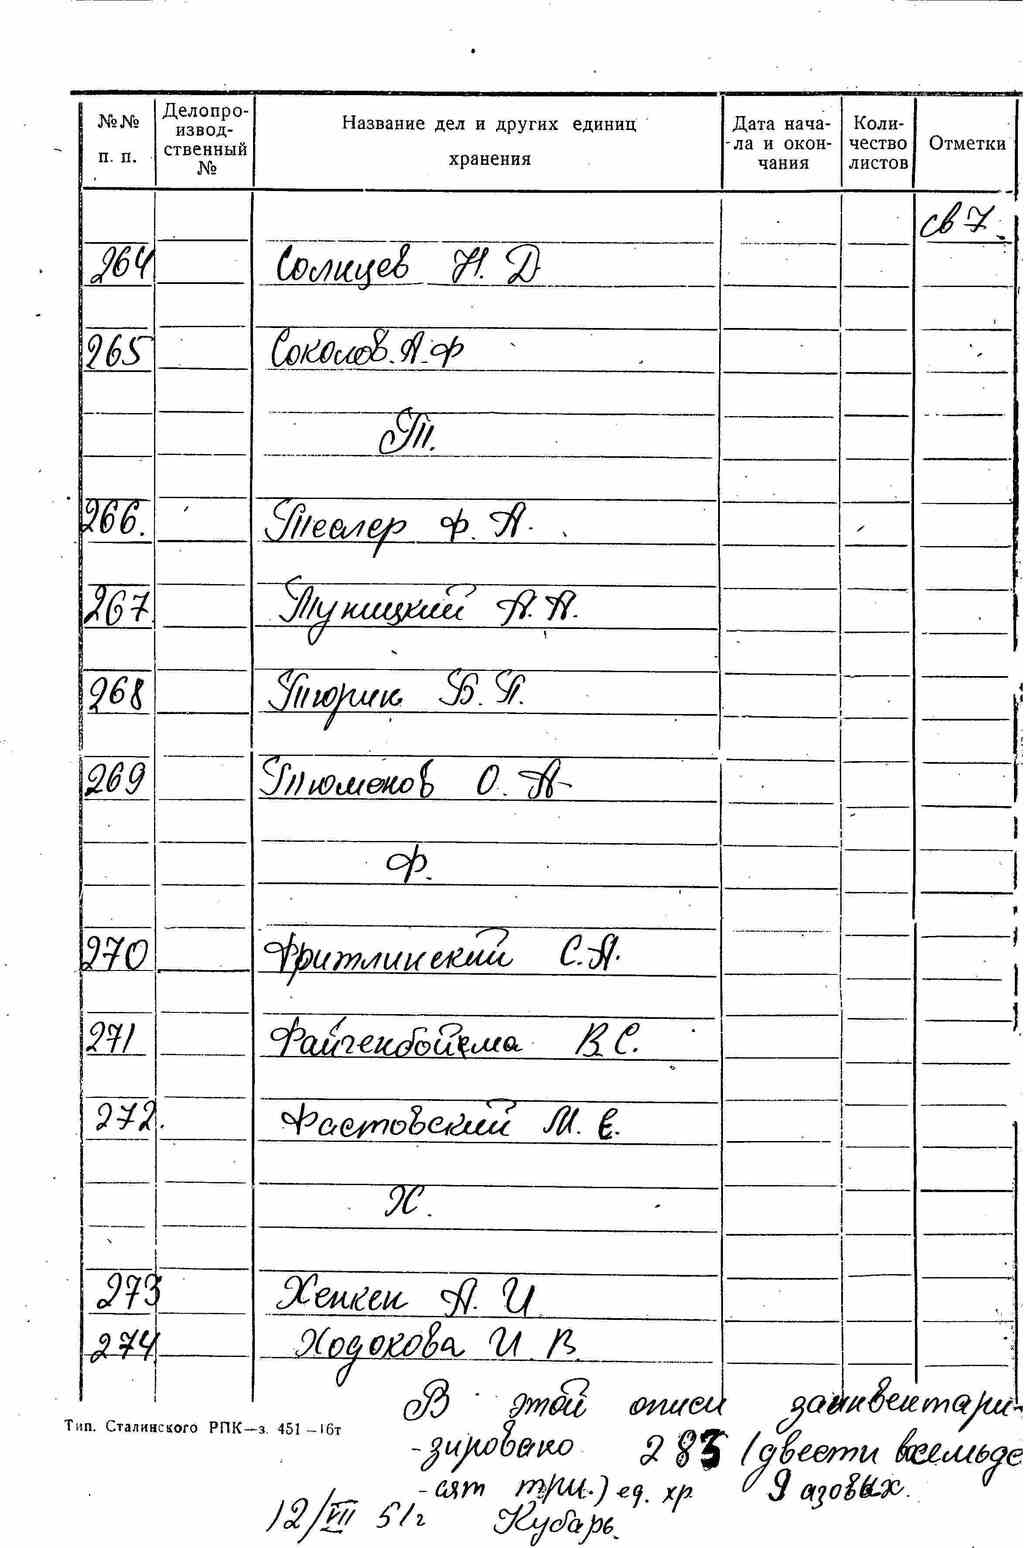 №№ п. п.
Делопроизвод-ственный №
Название дел и других единиц хранения
Дата нача-ла и окон-чания
Коли-чество листов
Отметки
св 7.
264 Солнцев Н. Д
265 Соколов. А. Ф
Т.
266. Теслер Ф. А.
267. Туницкий А. А.
268 Тюрин Б. П.
269 Тюменов О. А
Ф.
270 Фритлинский С. А.
271 Файгенбойма В. С.
272. Фастовский М. Е.
Х.
273 Хенкен А. И
274. Ходокова И. В.
В этой описи заинвентари-
-зировано 283 (двести всемьде
-сят три.) ед. хр
12/VII 51г Кубарь.
Тип. Сталинского РПК—з. 451—16т